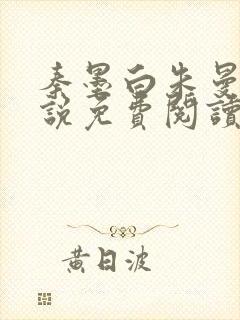 秦墨白朱曼
説免費閱讀
黄日波